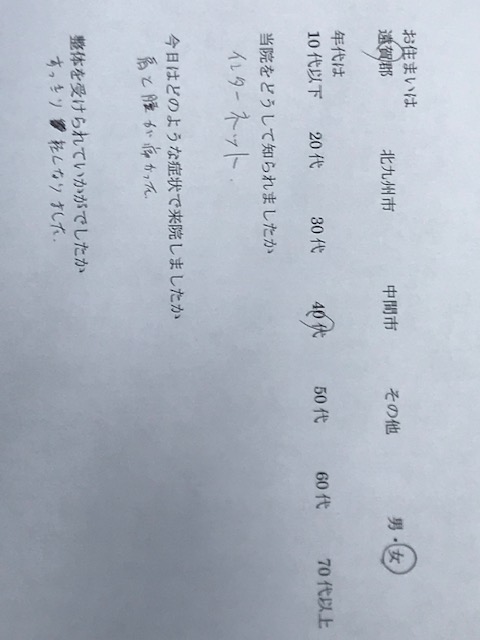 お住まいは
遠賀郡 北九州市 中間市 その他 男・女
年代は
10代以下 20代 30代 40代 50代 60代 70代以上
当院をどうして知られましたか
インターネット.
今日はどのような症状で来院しましたか
肩と腰が痛かった
整体を受けられていかがでしたか
すっきり しなりました.